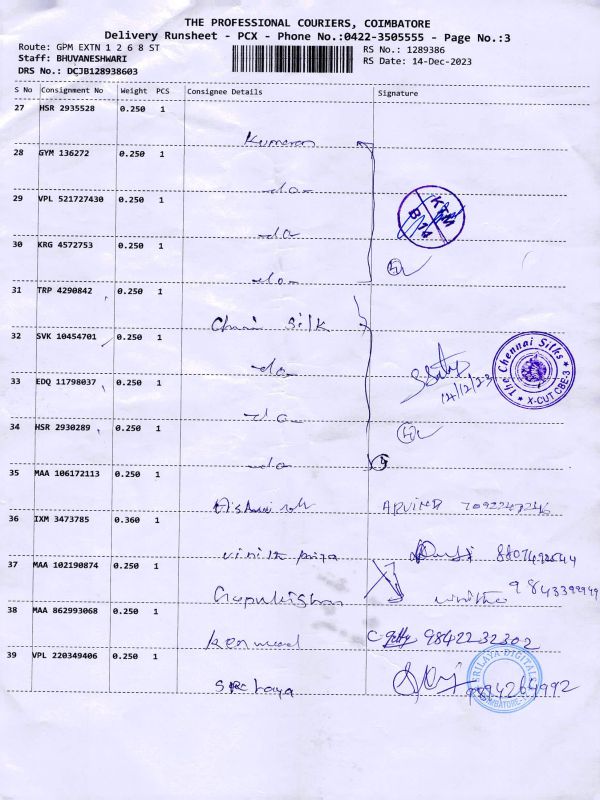 THE PROFESSIONAL COURIERS, COIMBATORE
Delivery Runsheet - PCX - Phone No.:0422-3505555 - Page No.:3
Route: GPM EXTN 1 2 6 8 ST
RS No.: 1289386
Staff: BHUVANESHWARI
RS Date: 14-Dec-2023
DRS No.: DCJB128938603
S No Consignment No Weight PCS Consignee Details Signature
27 HSR 2935528 0.250 1
Kumaran
28 GYM 136272 0.250 1
-do-
29 VPL 521727430 0.250 1
-do
30 KRG 4572753 0.250 1
-do-
31 TRP 4290842 0.250 1
silk
32 SVK 10454701 0.250 1
-do-
The Chennai Silks
X-CUT CBE-3
33 EDQ 11798037 0.250 1
14/12/23
-do-
34 HSR 2930289 0.250 1
-do
35 MAA 106172113 0.250 1
ARVIND
36 IXM 3473785 0.360 1
vinith priya
37 MAA 102190874 0.250 1
Gopukishan
38 MAA 862993068 0.250 1
9842232302
39 VPL 220349406 0.250 1
SRILAYA DIGITALS
9894264992